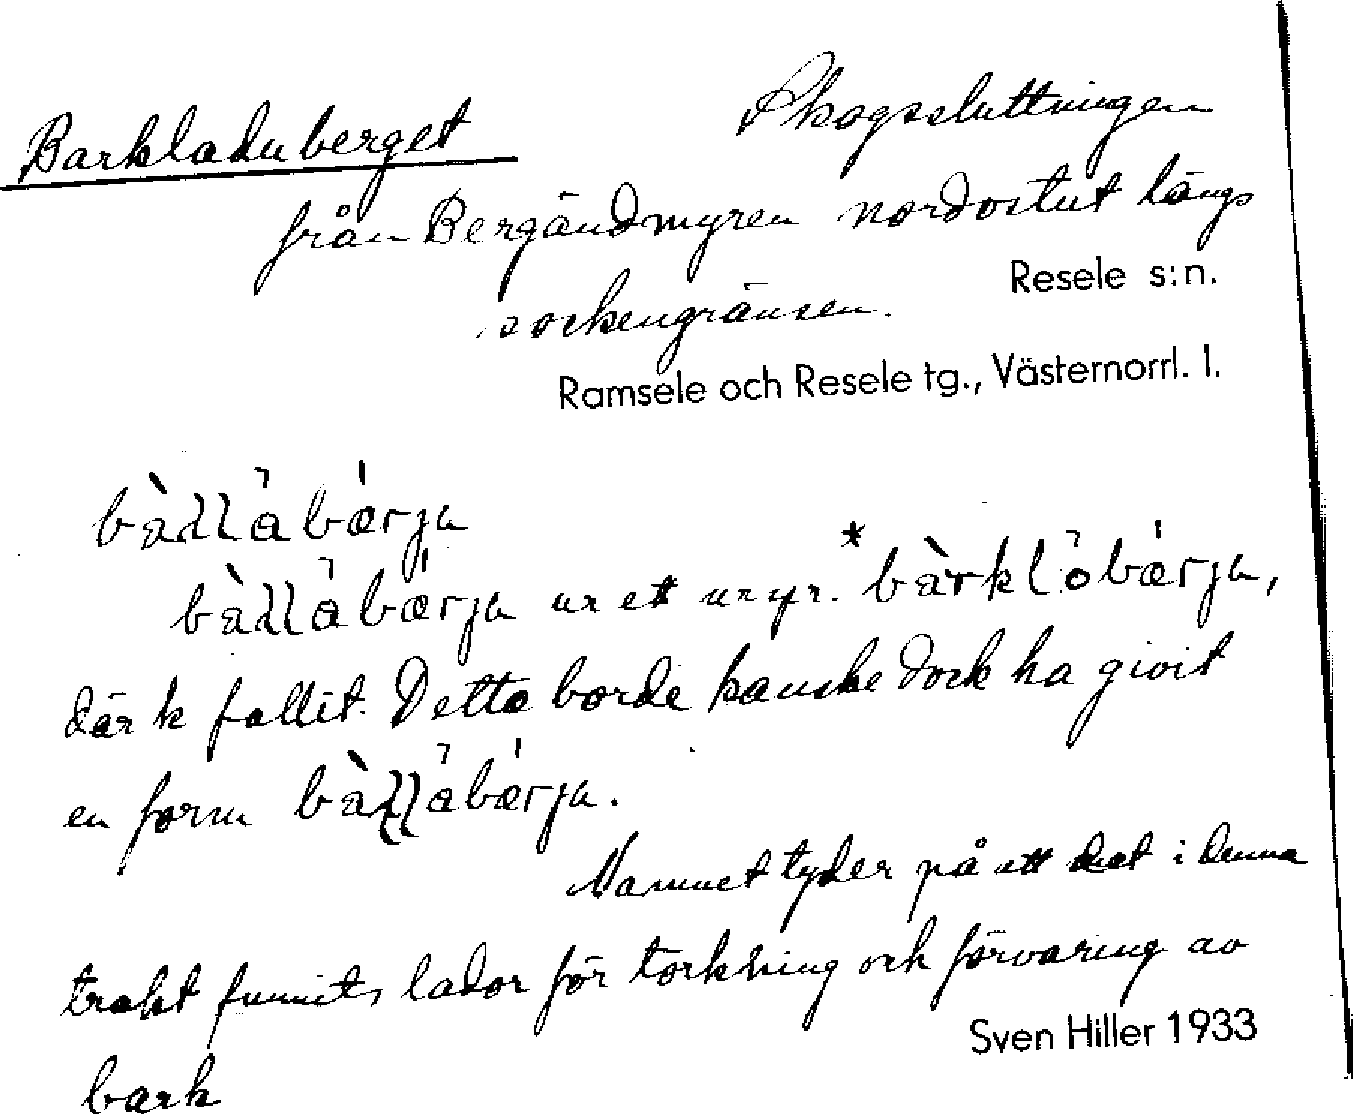 Barkladuberget Skogssluttningen
från Bergändmyren nordostut längs
Resele s:n.
sockengränsen.
Ramsele och Resele tg., Västernorrl. l.
ur ett urspr.
där k fallit. Detta borde kanske dock ha givit
en form
Namnet tyder på att det i denna
trakt funnits lador för torkning och förvaring av
Sven Hiller 1933
bark